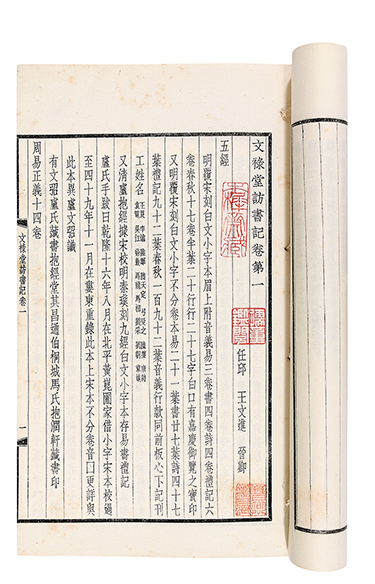 文祿堂訪書記卷第一
任邱 王文進 晉卿
五經
明覆宋刻白文小字本眉上附音義易三卷書四卷詩四卷禮記六
卷春秋十七卷半葉二十行行二十七字白口有嘉慶御覽之寶印
又明覆宋刻白文小字不分卷本易二十一葉書廿七葉詩四十七
葉禮記九十二葉春秋一百九十二葉音義行款同前板心下記刊
工姓名
又清盧抱經據宋校明秦璞刻九經白文小字本存易書禮記
盧氏手跋曰乾隆十六年八月在北平黃崑圃家借小字宋本校過
至四十九年十一月在婁東重錄此本上宋本不分卷音囗更詳與
此本異盧文弨識
有文弨盧氏藏書抱經堂其昌通伯桐城馬氏抱潤軒藏書印
周易正義十四卷
文祿堂訪書記卷一
一